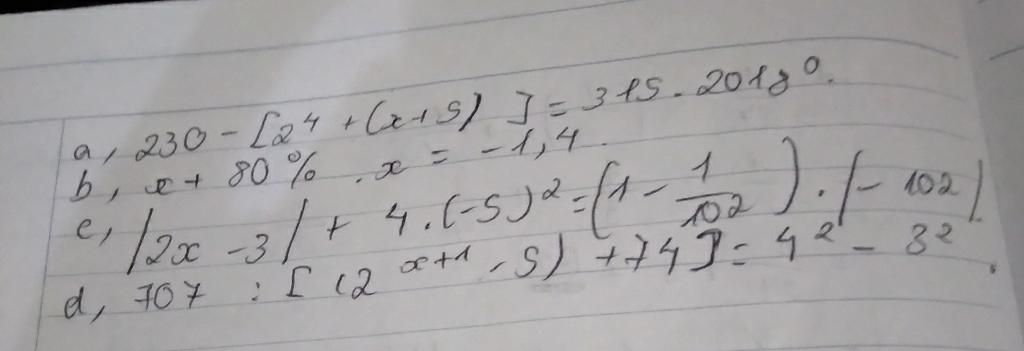 a, 230 - [2⁴ + (x+5) ] = 315 . 2018⁰.
b, x + 80% . x = -1,4.
c, |2x - 3| + 4.(-5)² = (1 - 1/102) . |- 102|
d, 707 : [ (2ˣ⁺¹ - 5) + 74] = 4² - 3².